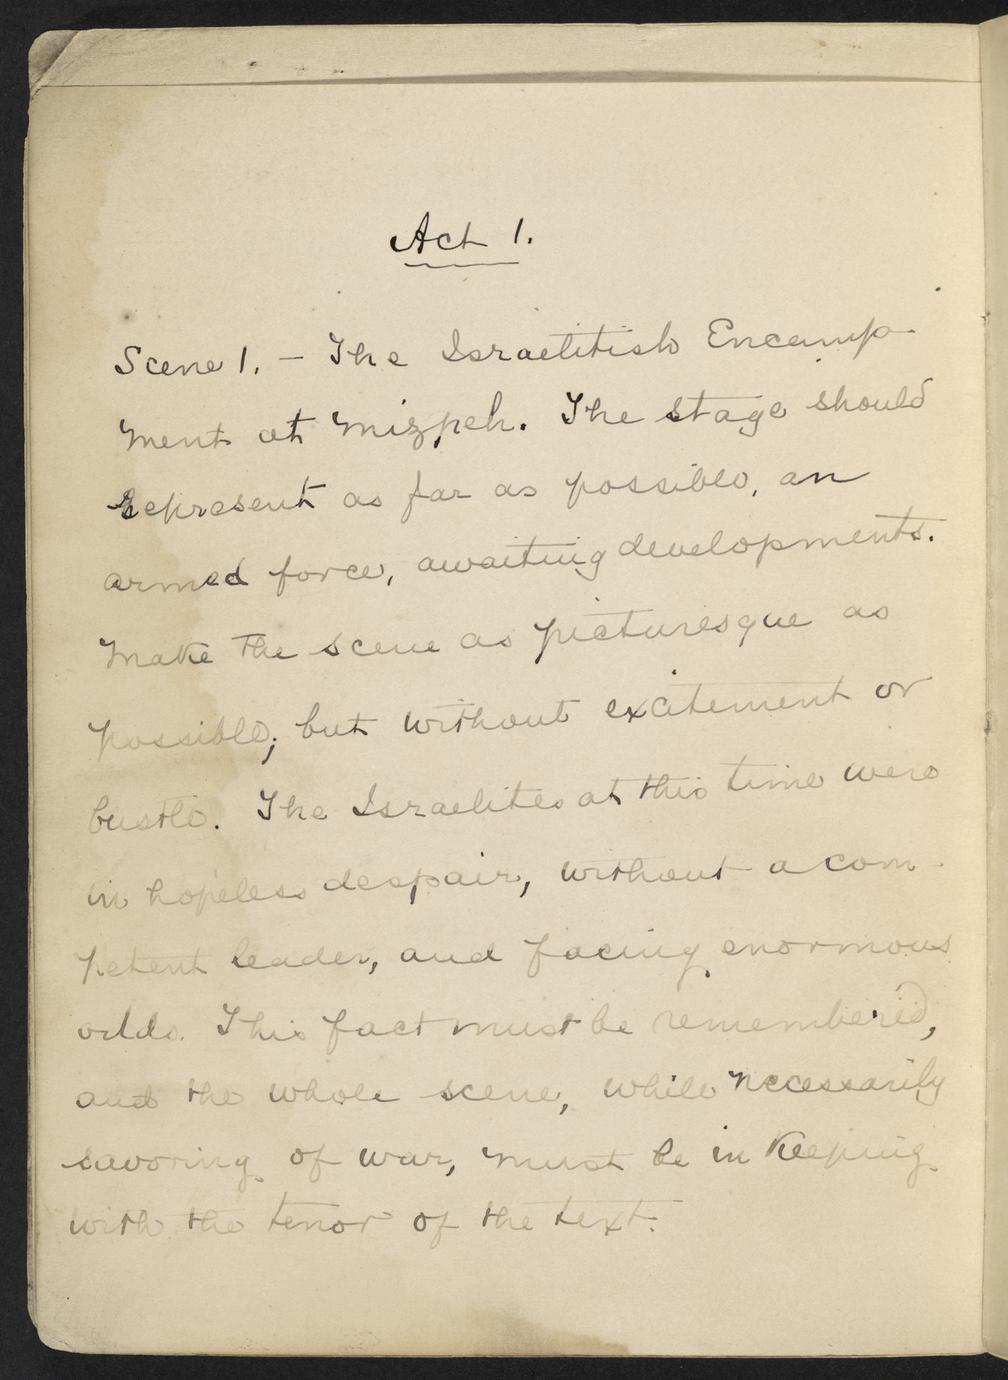 Act 1.
Scene 1. – The Israelitish Encamp-
ment at Mizpeh. The stage should
represent as far as possible, an
armed force, awaiting developments.
Make the scene as picturesque as
possible; but without excitement or
bustle. The Israelites at this time were
in hopeless despair, without a com-
petent leader, and facing enormous
odds. This fact must be remembered,
and the whole scene, while necessarily
savoring of war, must be in keeping
with the tenor of the text.